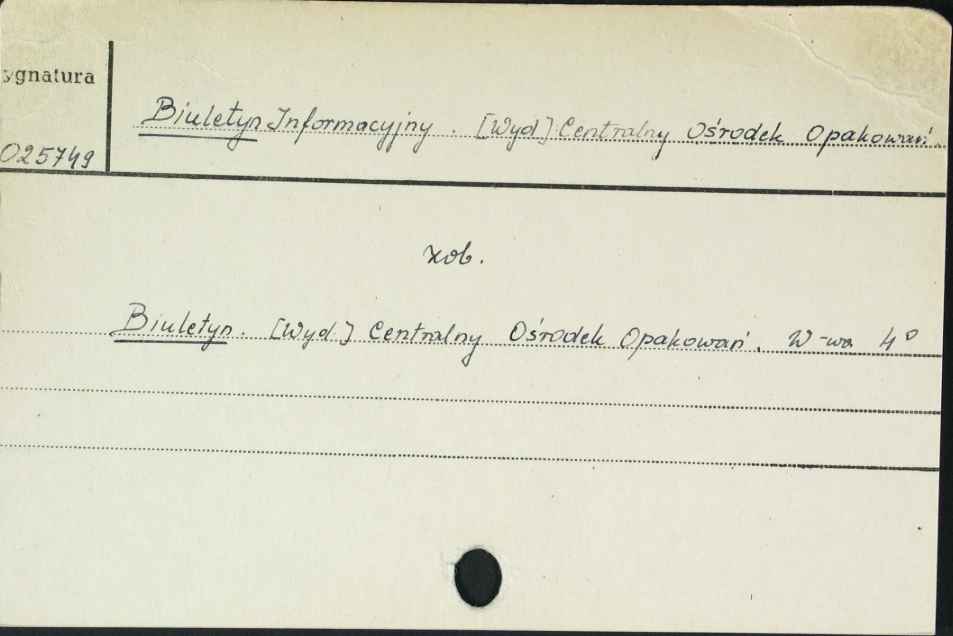 ygnatura
Biuletyn Informacyjny. [Wyd] Centralny Ośrodek Opakowań.
025749
zob.
Biuletyn. [Wyd.] Centralny Ośrodek Opakowań. W-wa 4°